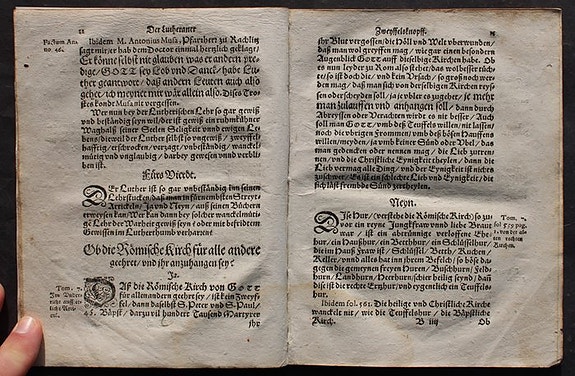 12
Der Lutheraner
Fa. cum An-
no. 46.
Ibidem M. Antonius Musa, Pfarzherr zu Rachlitz
sagt mir / er hab dem Doctor einmal hertzlich geklagt /
Er könne selbst nit glauben was er andern pre-
dige / GOTT sey Lob vnd Danck / habe Lu-
ther geantwort / daß andern Leuten auch also
gehet / ich meynte mir wär allein also. Dises Tro-
stes kondt Musa nit vergessen.
Wer nun bey der Lutherischen Lehr so gar gewiß
vnd beständig seyn wil / der ist gewiß ein ruhmkühner
Waghalß seiner Seelen Seligkeit vnnd ewigen Le-
bens / dieweil der Luther selbst so vngewiß / zweyffel-
hafftig / erschrocken / verzagt / vnbeständig / wanckel-
mütig vnd vnglaubig / darbey gewesen vnnd verbli-
ben ist.
Fürs Vierdt.
DEr Luther ist so gar vnbeständig inn seinen
Lehrstucken / daß man in fürnembsten Streyt
Artickeln / Ja vnd Neyn / auß seinen Büchern
erweysen kan / Wer kan dann bey solcher wanckelmüti-
ge Lehr der Warheit gewiß seyn / oder mit befridetem
Gewissen im Lutherthumb verharren?
Ob die Römische Kirch für alle andere
geehret / vnd ihr anzuhangen sey?
Ja.
Tom. 7.
DAß die Römische Kirch von GOTT
für allen andern geehret sey / ist kein Zweyf-
fel / dann daselbst S. Peter vnd S. Paul /
45. Bäpst / darzu vil hundert Tausend Martyrer
jhr
Zweyffelsknopff.
ihr Blut vergossen / die Höll vnd Welt vberwunden /
daß man wol greyffen mag / wie gar einen besondern
Augenblick GOTT auff dieselbige Kirchen habe. Ob
es nun leyder zu Rom also stehet / das wol besser tüch-
te / so ist doch die / vnd kein Vrsach / so groß noch wer-
den mag / daß man sich von derselbigen Kirchen reys-
sen oder scheyden soll / ja je vbler es zugehet / je mehr
man zulauffen vnd anhangen soll / dann durch
Abreyssen oder Verachten wirdt es nit besser / Auch
soll man GOTT / vmb deß Teuffel willen / nit lassen /
noch die vbrigen Frommen / vmb deß bösen Hauffens
willen / meyden / ja vmb keiner Sünd oder Vbel / das
man gedencken oder nennen mag / die Lieb zutren-
nen / vnd die Christliche Eynigkeit theylen / dann die
Lieb vermag alle Ding / vnd der Eynigkeit ist nichts
zuschwer / Es ist ein schlechte Lieb vnd Eynigkeit / die
sich läst frembde Sünd zertheylen.
Neyn.
Tom. 7.
fol 559 pag.
1. von der al-
ten rechten
Kirchen.
DIse Hur (verstehe die Römische Kirch) so zu-
vor ein reyne Jungkfraw vnnd liebe Braut
war / ist ein abtrünnige verloffene Ehe-
hur / ein Haußhur / ein Betthur / ein Schlüsselhur /
die im Hauß Fraw ist / Schlüssel / Betth / Kuchen /
Keller / vnnd alles hat inn ihrem Befelch / so böß da-
gegen die gemeynen freyen Huren / Buschhurn / Feld-
hurn / Landhurn / Heerhurn / schier heylig seynd / dañ
dise ist die rechte Ertzhur / vnd eygentlich ein Teuffels-
hur.
Ibidem fol. 561. Die heilige vnd Christliche Kirche
wanckelt nit / wie die Teuffelshur / die Bäpstliche
Kirch.
B iiij
Ob